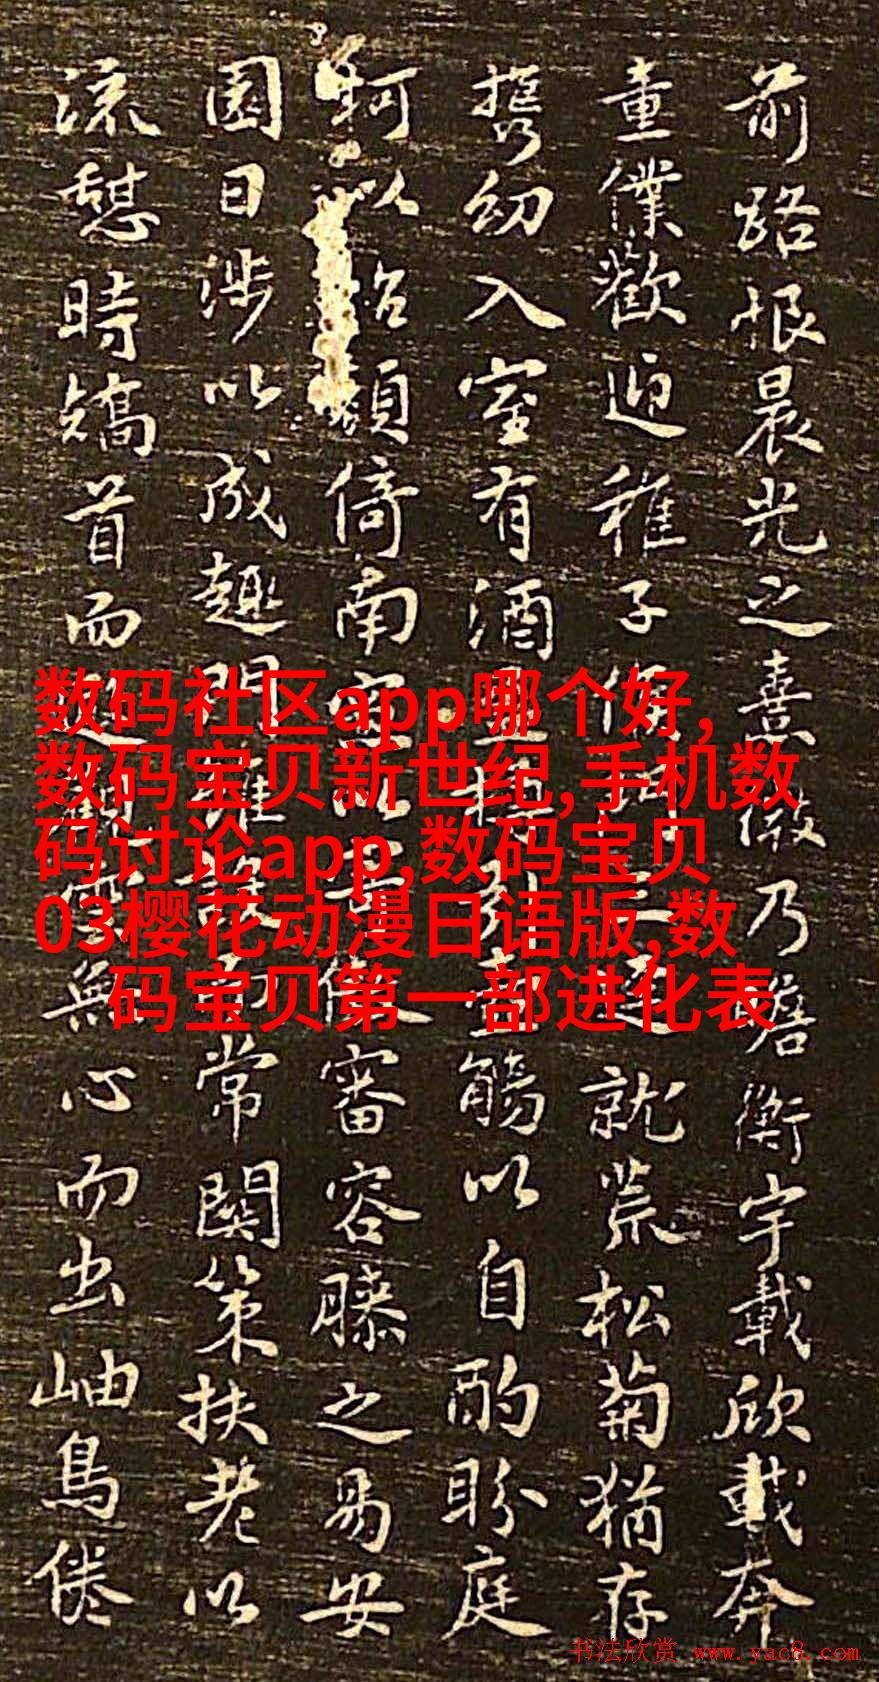 前路恨晨光之熹微乃瞻衡宇載欣載奔
童僕歡迎稚子候門三逕就荒松菊猶存
携幼入室有酒盈樽引壺觴以自酌盼庭
柯以怡顏倚南窓以寄傲審容膝之易安
園日涉以成趣門雖設而常關策扶老以
流憩時矯首而遐觀雲無心而出岫鳥倦
数码社区app哪个好,
数码宝贝新世纪,手机数
码讨论app,数码宝贝
03樱花动漫日语版,数
码宝贝第一部进化表
书法欣赏 www.yac8.com